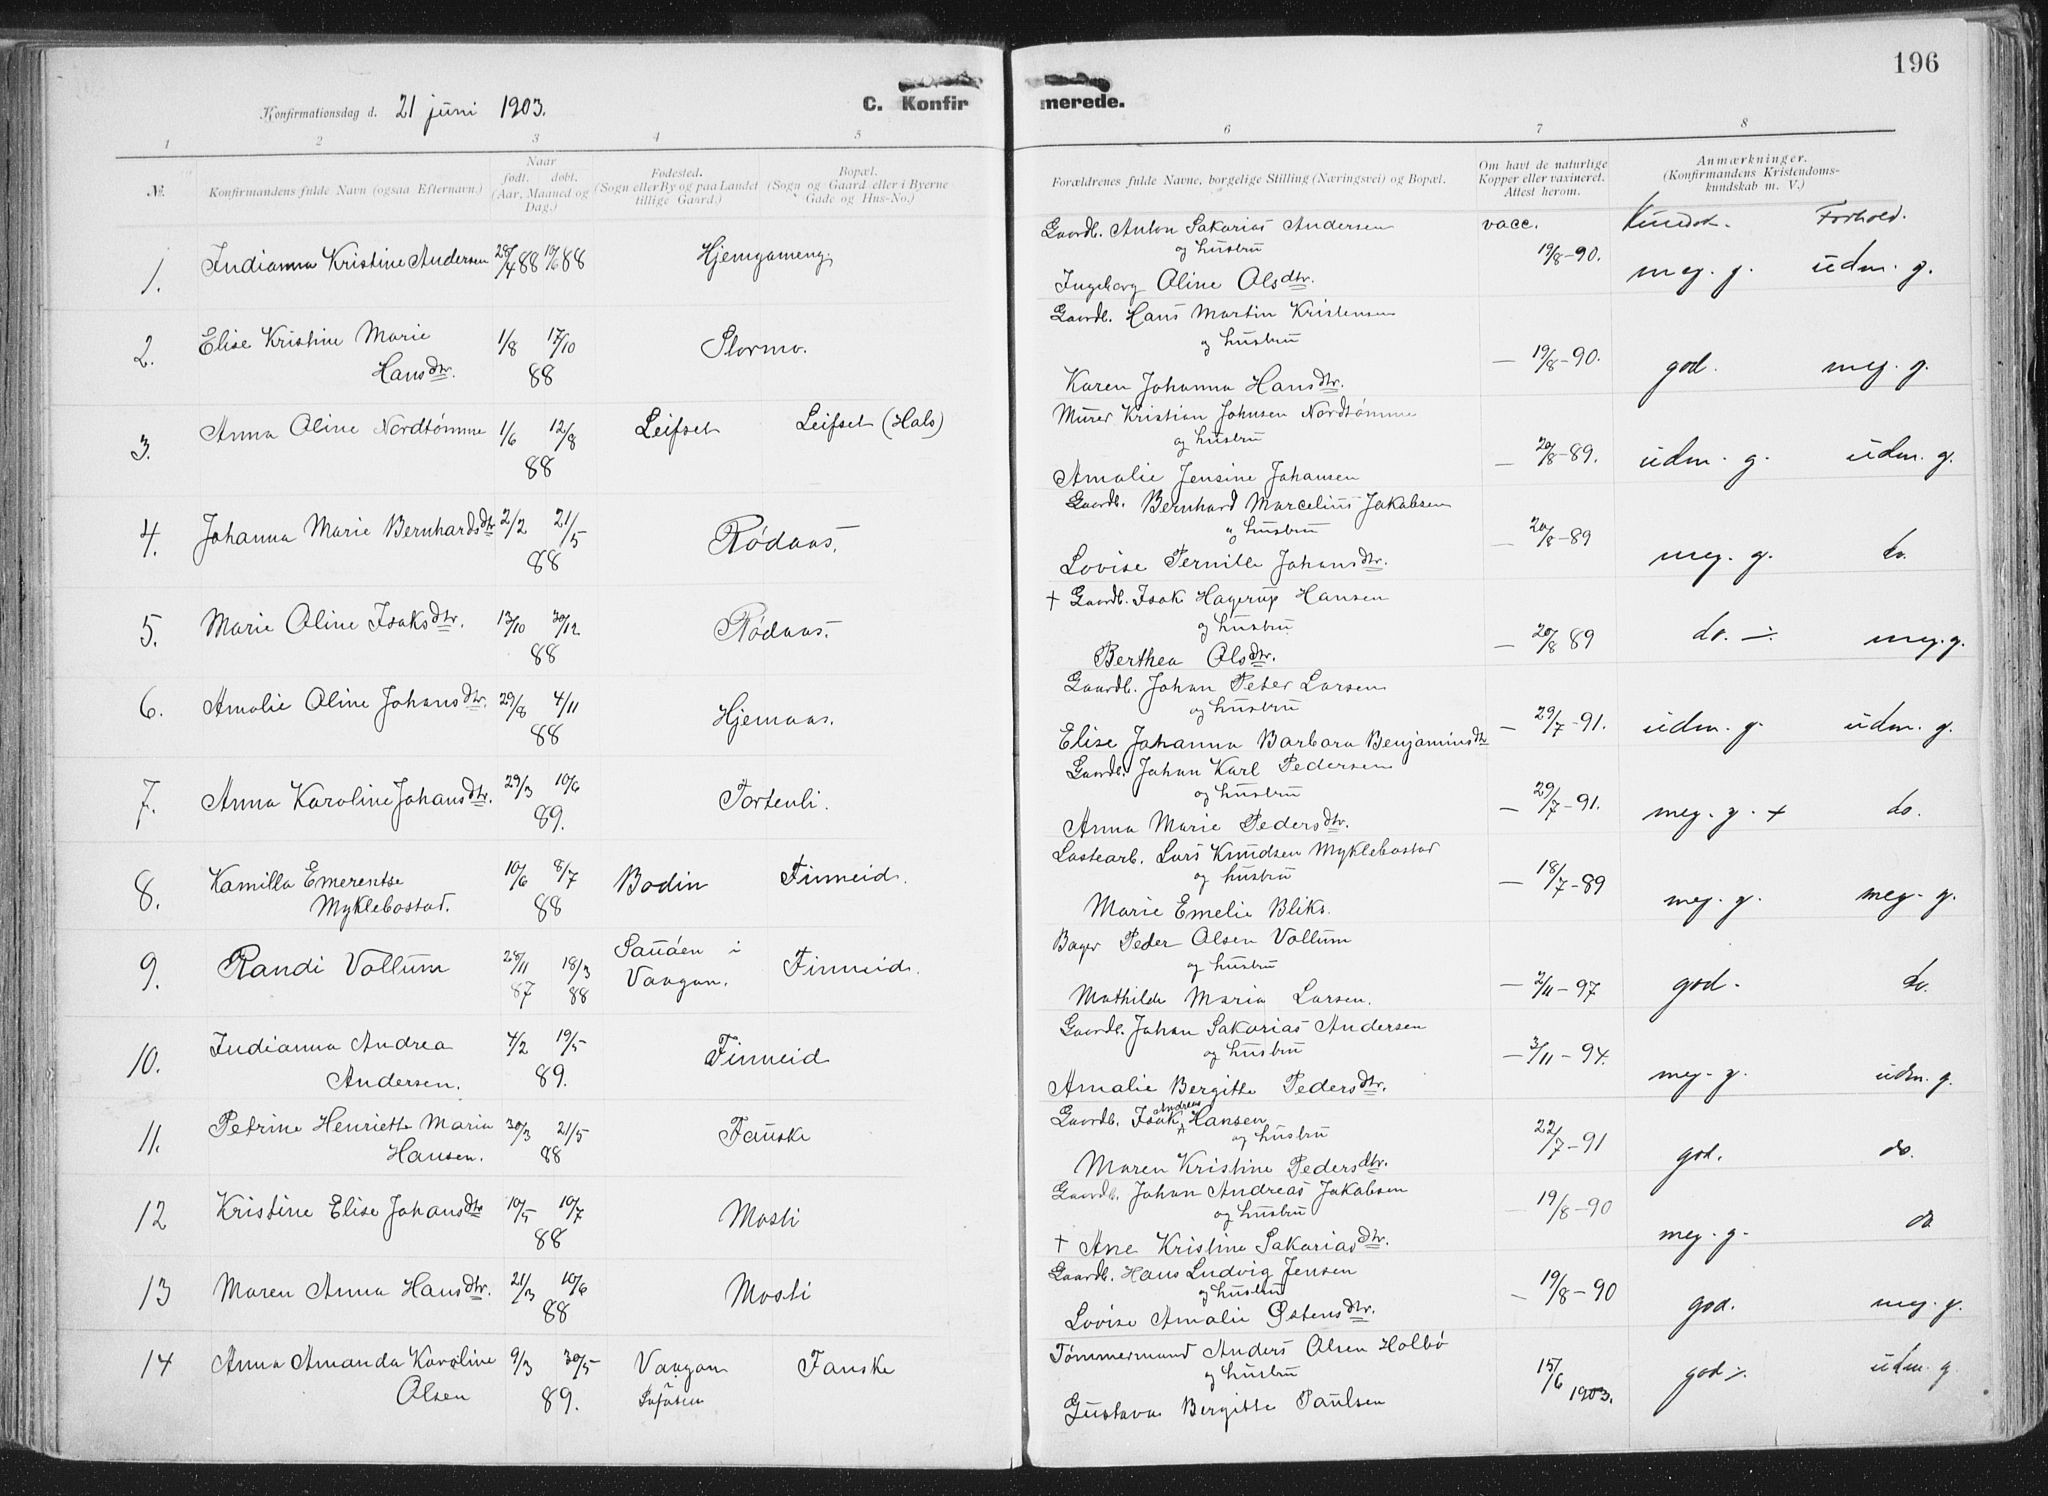 196
Konfirmationsdag d. 21 juni 1903.
C. Konfirmerede.
1 2 3 4 5 6 7 8
No.
Konfirmandens fulde Navn (ogsaa Efternavn.)
Naar
født. døbt.
(Aar, Maaned og
Dag.)
Fødested.
(Sogn eller By og paa Landet
tillige Gaard.)
Bopæl.
(Sogn og Gaard eller i Byerne
Gade og Hus-No.)
Forældrenes fulde Navne, borgelige Stilling (Næringsvei) og Bopæl.
Om havt de naturlige
Kopper eller vaxineret.
Attest herom.
Anmærkninger.
(Konfirmandens Kristendoms-
kundskab m. V.)
vacc. Kundsk. Forhold.
1. Indianna Kristine Andersen 28/4 88 10/6 88 Hjemgameng.
Gaardb. Anton Sakarias Andersen
og hustru
Ingeborg Oline Olsdtr.
19/8-90. meg. g. udm. g.
2. Elise Kristine Marie
Hansdtr.
1/8 17/10
88
Stormo.
Gaardb. Hans Martin Kristensen
og hustru
Karen Johanna Hansdtr.
— 19/8-90. god. meg. g.
3. Anna Oline Nordtømme 1/6 12/8
88
Leifset Leifset (Hals)
Murer Kristian Johnsen Nordtømme
og hustru
Amalie Jensine Johansen
— 20/8-89. udm. g. udm. g.
4. Johanna Marie Bernhardsdtr 2/2 21/5
88
Rødaas.
Gaardb. Bernhard Marcelius Jakobsen
og hustru
Lovise Pernille Johansdtr.
— 20/8-89 meg. g. do.
5. Marie Oline Isaksdtr. 13/10 30/12
88
Rødaas.
† Gaardb. Isak Hagerup Hansen
og hustru
Berthea Olsdtr.
— 20/8 89 do. -:- meg. g.
6. Amalie Oline Johansdtr. 29/8 4/11
88
Hjemaas.
Gaardb. Johan Peter Larsen
og hustru
Elise Johanna Barbara Benjaminsdtr
— 29/7-91. udm. g. udm. g.
7. Anna Karoline Johansdtr. 29/3 10/6
89.
Tortenli.
Gaardb. Johan Karl Pedersen
og hustru
Anna Marie Pedersdtr.
— 29/7-91. meg. g. + do.
8. Kamilla Emerentse
Myklebostad.
10/6 8/7
88
Bodin Finneid.
Lastearb. Lars Knudsen Myklebostad
og hustru
Marie Emelie Bliks.
— 18/7-89 meg. g. meg. g.
9. Randi Vollum 28/11 18/3
87 88
i
Vaagan. Finneid.
Bager Peder Olsen Vollum
og hustru
Mathilde Maria Larsen.
— 2/11-97 god. do.
10. Indianna Andrea
Andersen.
4/2 19/5
89.
Finneid
Gaardb. Johan Sakarias Andersen
og hustru
Amalie Bergitte Pedersdtr.
— 3/11-94. meg. g. udm. g.
11. Petrine Henriette Maria
Hansen.
30/3 21/5
88
Fauske
Gaardb. Isak Andreas Hansen
og hustru
Maren Kristine Pedersdtr.
22/7-91 god. do.
12 Kristine Elise Johansdtr 10/5 10/7
88
Mosti
Gaardb. Johan Andreas Jakobsen
og hustru
† Ane Kristina Sakariasdtr.
— 19/8-90 meg. g. do
13 Maren Anna Hansdtr. 21/3 10/6
88
Mosti
Gaardb. Hans Ludvig Jensen
og hustru
Lovise Amalie Østensdtr.
— 19/8-90 god. meg. g.
14 Anna Amanda Karoline
Olsen
9/3 30/5
89.
Vaagan
Fauske
Tømmermand Anders Olsen Holbø
og hustru
Gustava Bergitte Paulsen
15/6
1903. god -:- udm. g.